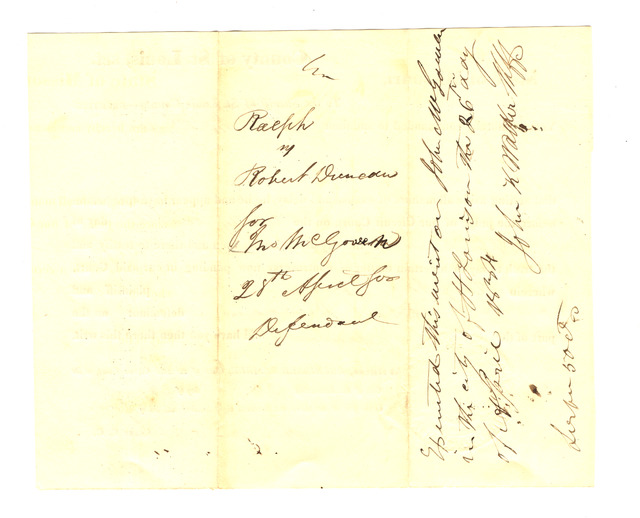 Ralph
vs
Robert Duncan
for
Jno McGovern
28th April for
Defendant
Executed this writ on John McGovern
in the city of St Louis on the 26th day
of April 1834 John K Walker Shff
Serfu 50 cts